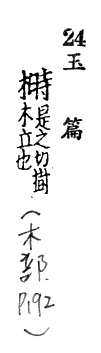 24
玉篇
榯
是之切樹
木立也
(木部
P.192)